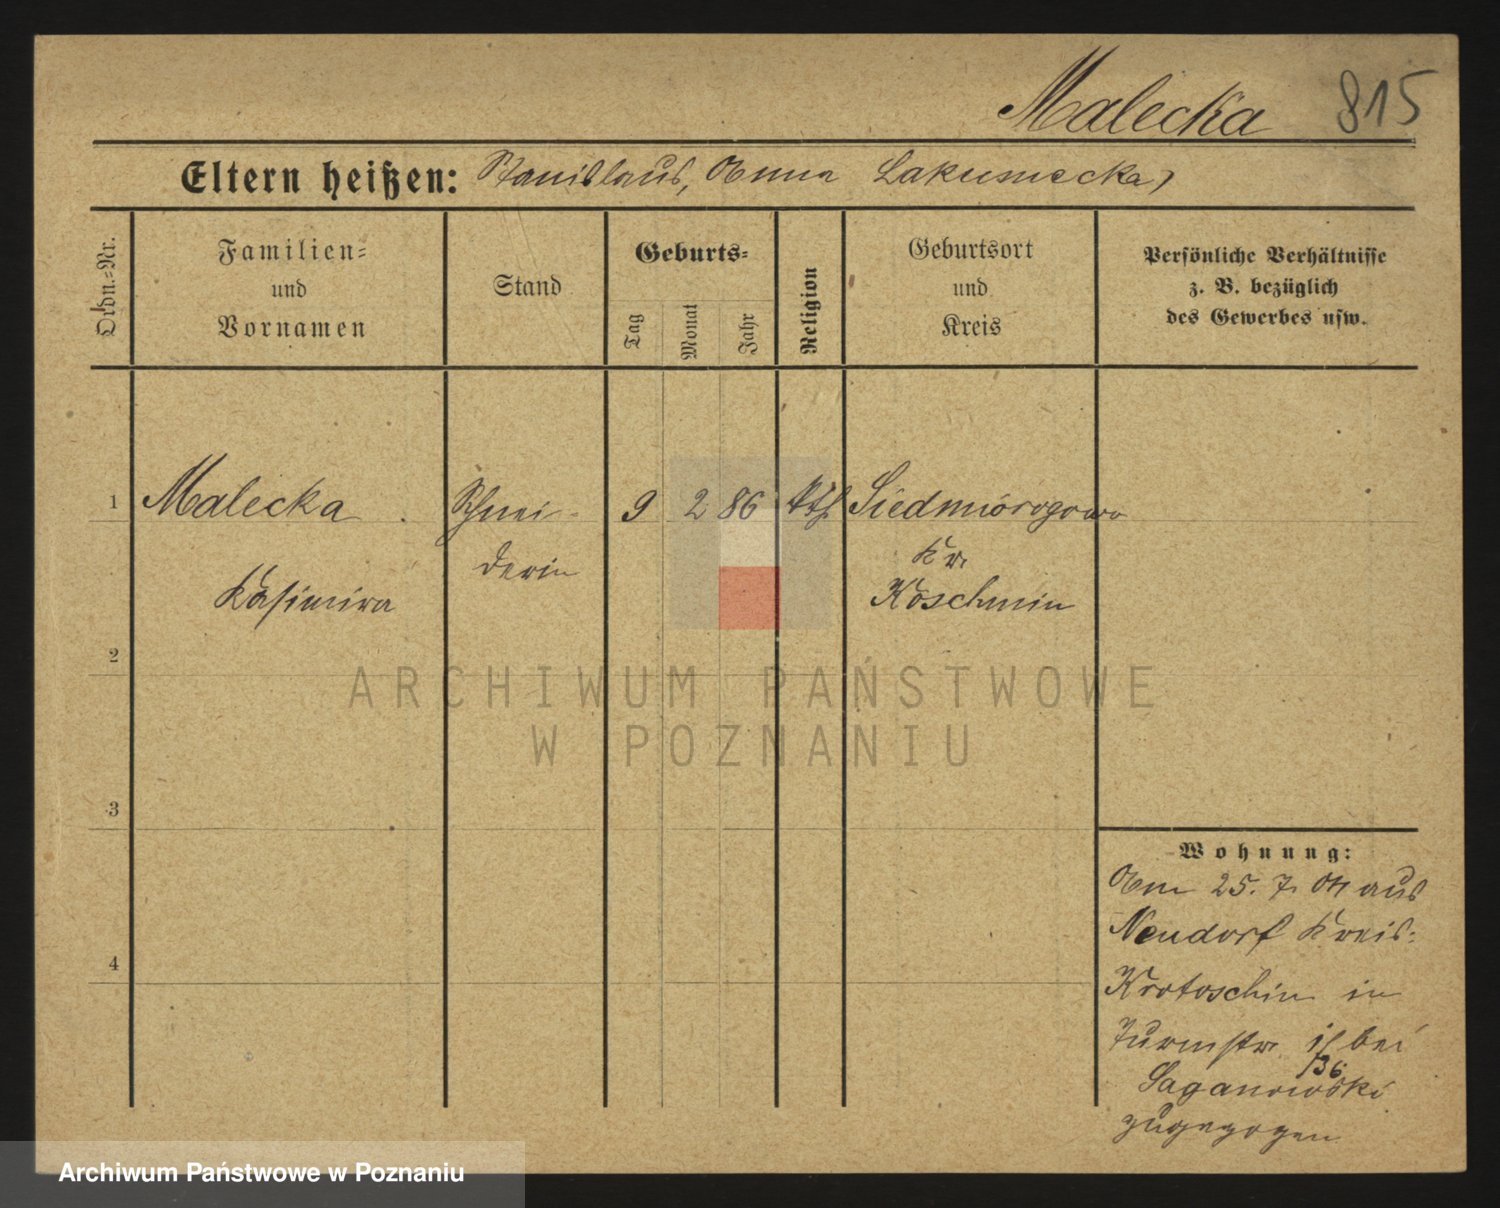 Malecka 815
Eltern heißen: Stanislaus, Anna Lakumecka,
Ordn.-Nr.
Familien-
und
Vornamen
Stand
Geburts-
Tag
Monat
Jahr
Religion
Geburtsort
und
Kreis
Persönliche Verhältnisse
z. B. bezüglich
des Gewerbes usw.
1 Malecka Schnei- 9 2 86 kth. Siedmiorogowo
derin Kr.
Kasimira Koschmin
2
3
4
Wohnung:
Am 25. 7. 04 aus
Neudorf Kreis:
Krotoschin in
Turmstr. bei
Saganowski
zugezogen
ARCHIWUM PAŃSTWOWE
W POZNANIU
Archiwum Państwowe w Poznaniu